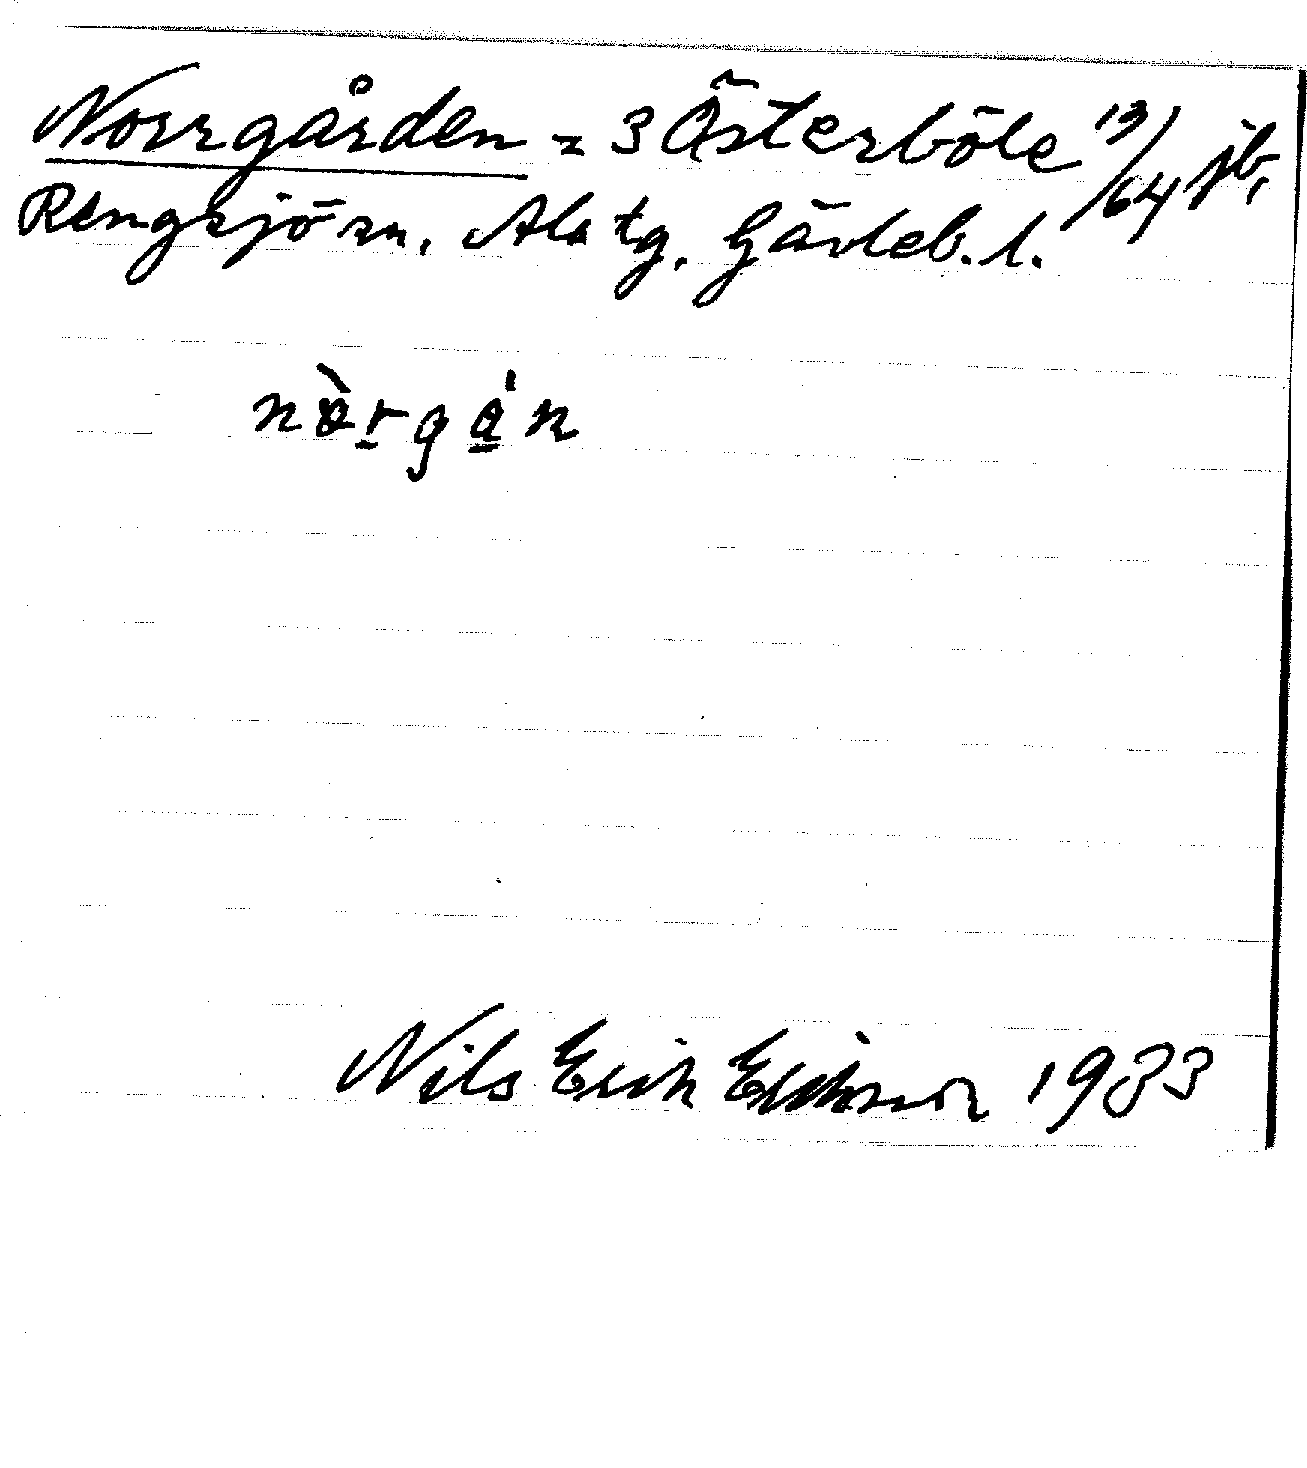 Norrgården = 3 Österböle 13/64 jb,
Rengsjö sn, Ala tg. Gävleb. l.
nòrgǻn
Nils Erik Eriksson 1933